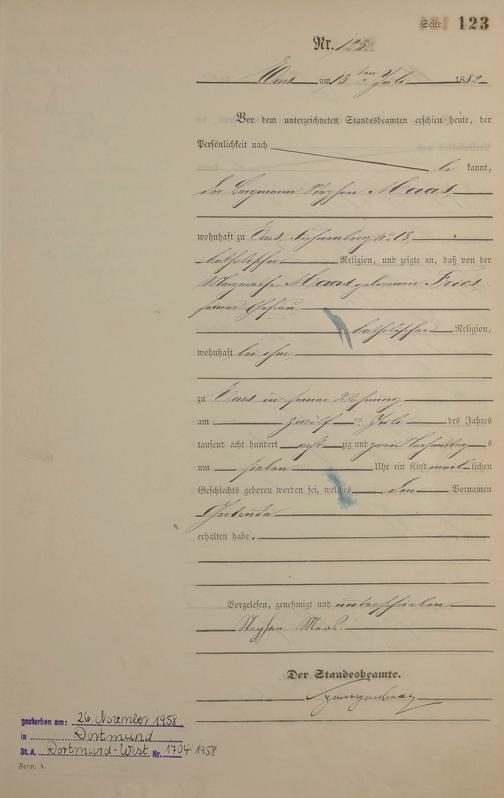 Seite 123
Nr. 123
am 13 ten Juli 1882
Vor dem unterzeichneten Standesbeamten erschien heute, der
Persönlichkeit nach
be kannt,
der Bergmann Stephan Maas,
wohnhaft zu
katholischer Religion, und zeigte an, daß von der
Margaretha Maas geborenen Fries,
seiner Ehefrau
katholischer Religion,
wohnhaft bei ihm,
zu in seiner Wohnung
am zwölf ten Juli des Jahres
tausend acht hundert acht zig und zwei Nachmittag s
um sieben Uhr ein Kind weib lichen
Geschlechts geboren worden sei, welches den Vornamen
Gertruda
erhalten habe.
Vorgelesen, genehmigt und unterschrieben
Stephan Maas.
Der Standesbeamte.
gestorben am: 26. November 1958
in Dortmund
St.A. Dortmund-West Nr. 1704/1958
Form. A.